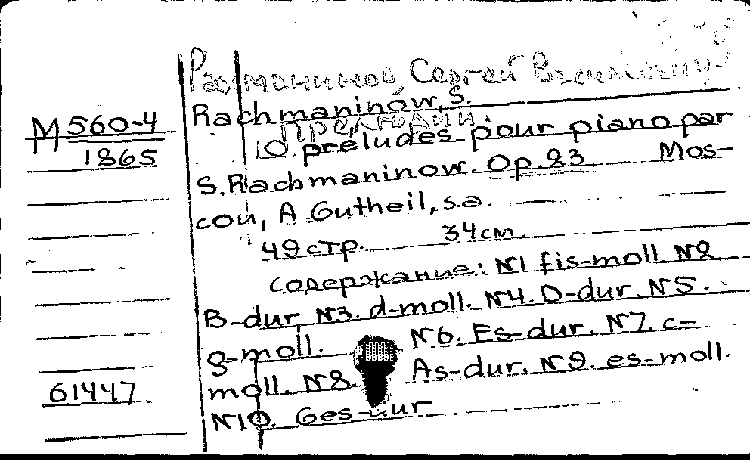 Рахманинов, Сергей Васильевич
Rachmaninow, S.
М 560-4
1865
Прелюдии
10 préludes pour piano par
S. Rachmaninow. Op. 23 Mos-
cou, A Gutheil, s.a.
49 стр. 34 см.
содержание: N1 fis-moll N2
B-dur, N3. d-moll. N4. D-dur. N5.
g-moll. N6. Es-dur. N7. c-
moll. N8 As-dur. N9. es-moll.
61447
N10. Ges-dur